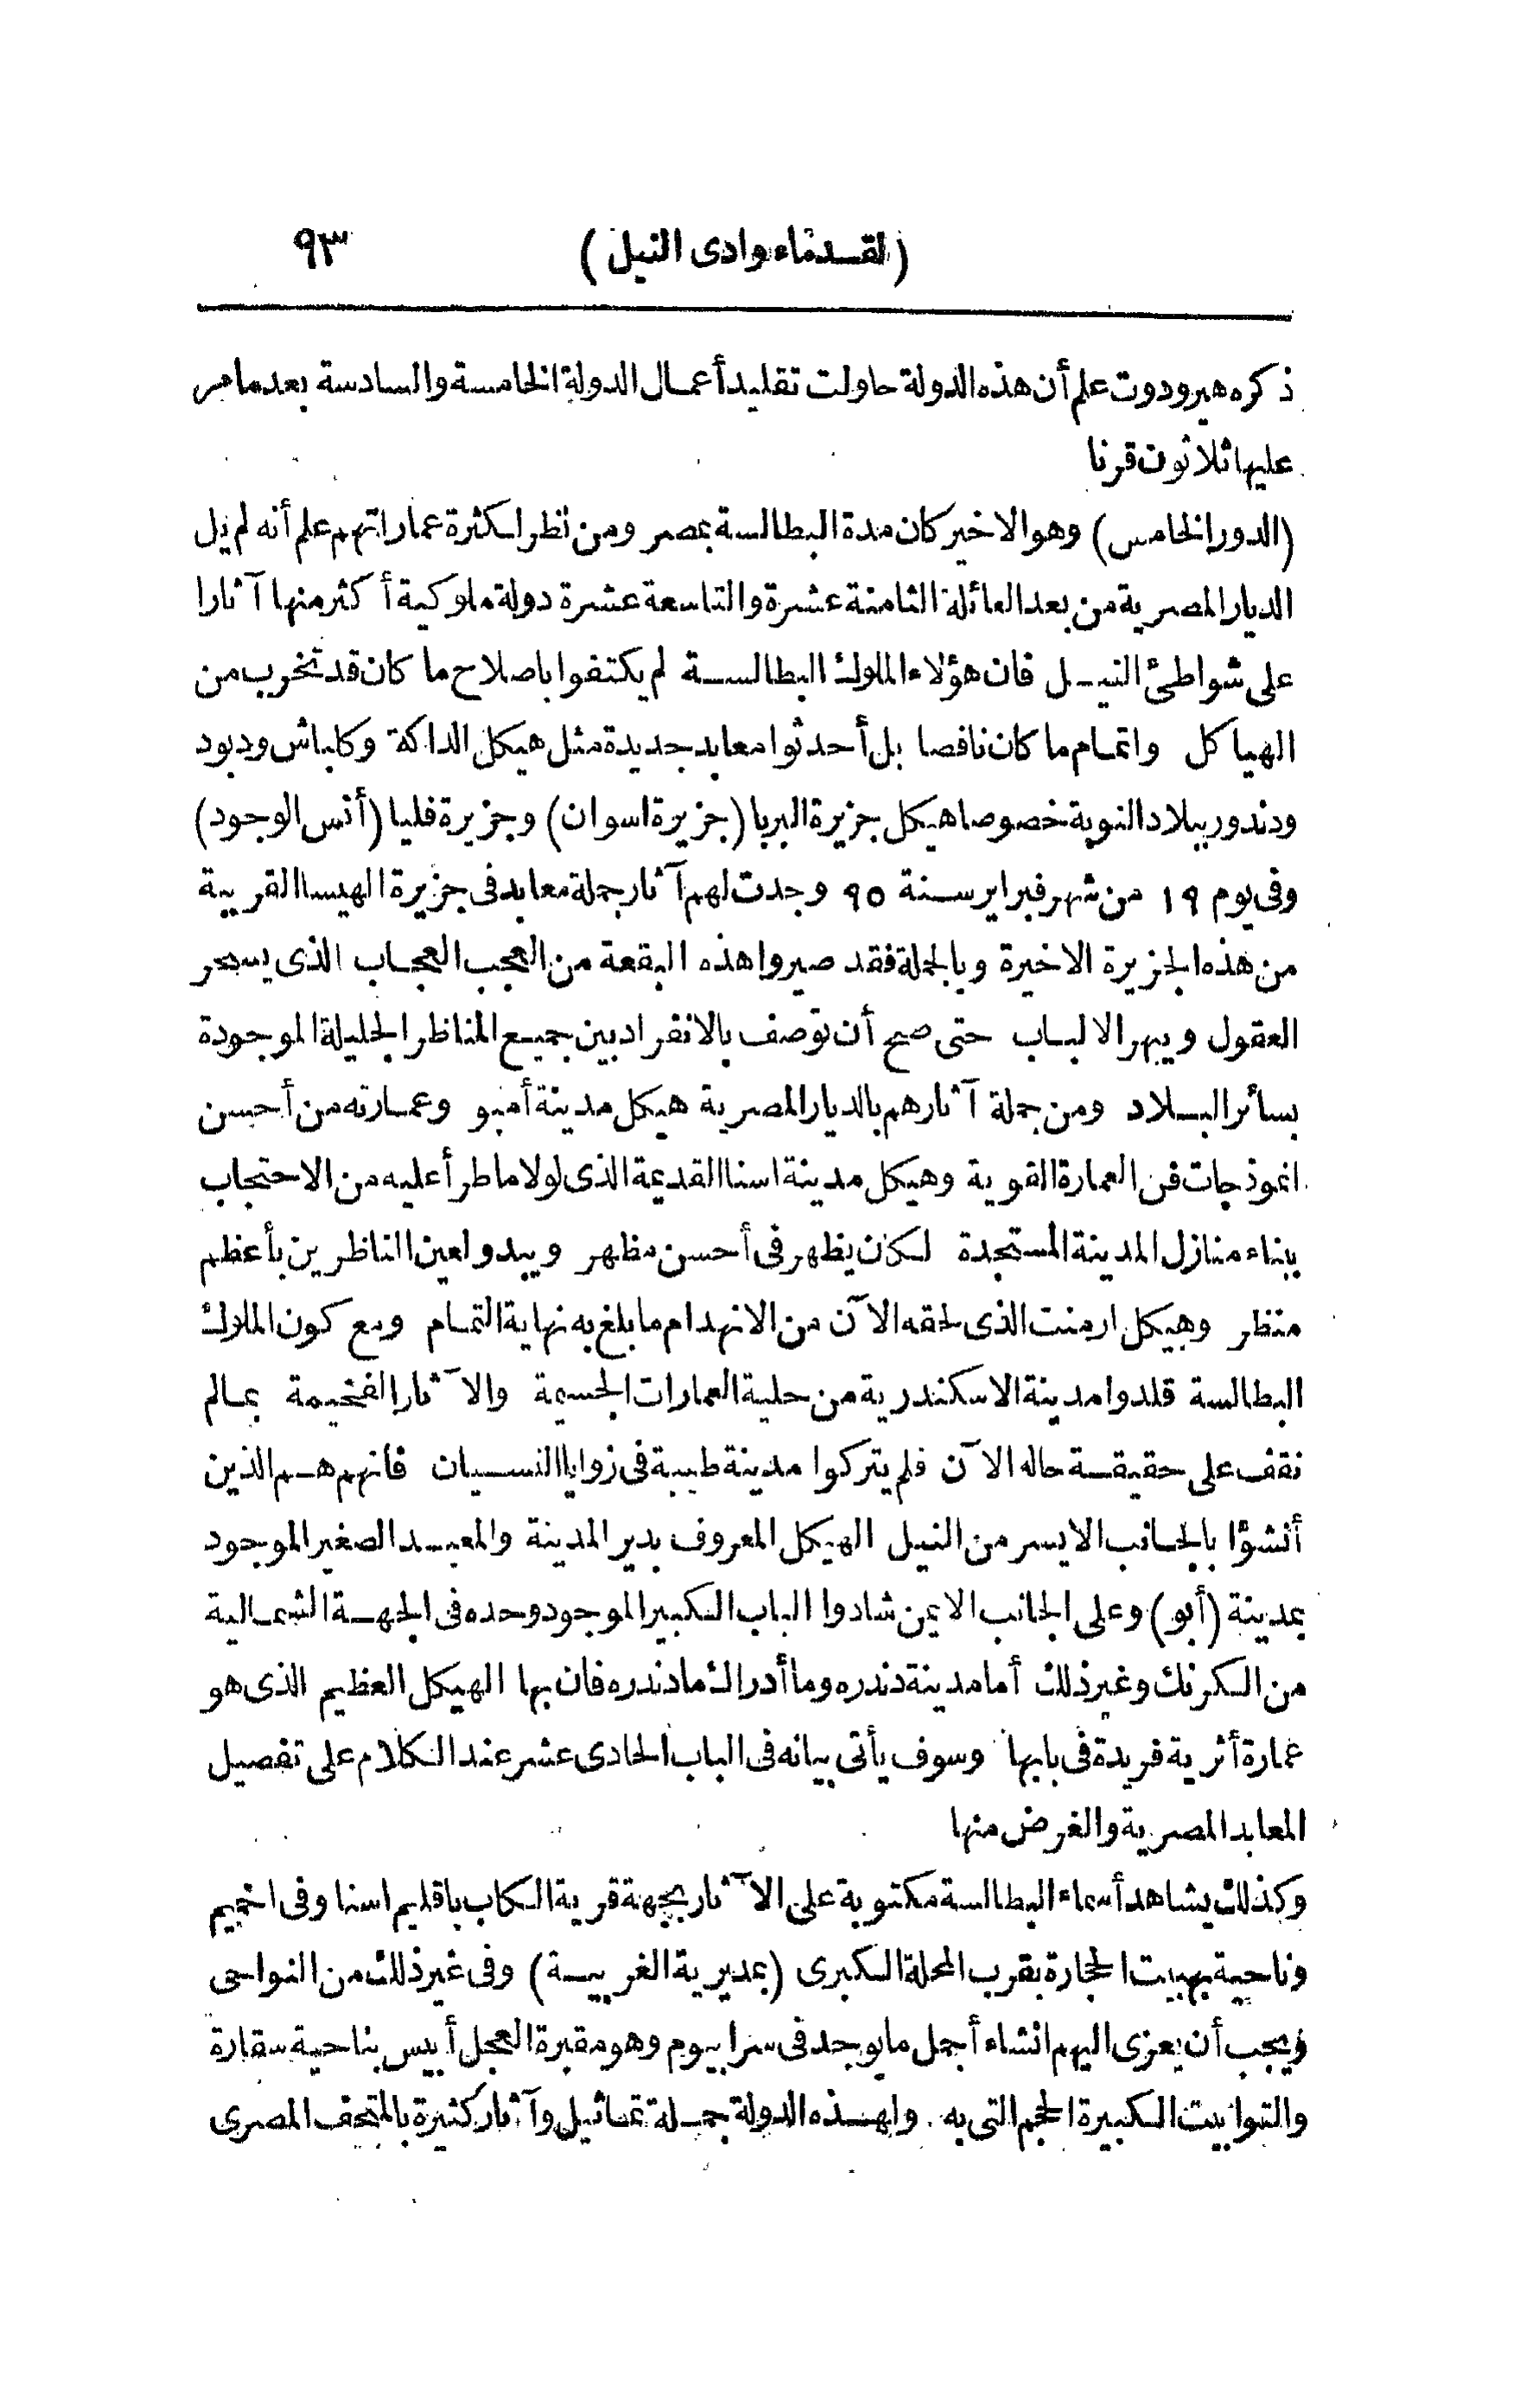 (لقدماء وادى النيل) ٩٣
ذكره هيرودوت علم أن هذه الدولة حاولت تقليد أعمال الدولة الخامسة والسادسة بعد ما مر
عليها ثلاثون قرنا
(الدور الخامس) وهو الاخير كان مدة البطالسة بمصر ومن نظر لكثرة عماراتهم علم أنه لم يل
الديار المصرية من بعد العائلة الثامنة عشرة والتاسعة عشرة دولة ملوكية أكثر منها آثارا
على شواطئ النيل فان هؤلاء الملوك البطالسة لم يكتفوا باصلاح ما كان قد تخرب من
الهياكل واتمام ما كان ناقصا بل أحدثوا معابد جديدة مثل هيكل الداكة وكلباش ودبود
ودندور ببلاد النوبة خصوصا هيكل جزيرة البربا (جزيرة اسوان) وجزيرة فليا (أنس الوجود)
وفى يوم ١٩ من شهر فبراير سنة ٩٥ وجدت لهم آثار جملة معابد فى جزيرة الهيسا القريبة
من هذه الجزيرة الاخيرة وبالجملة فقد صيروا هذه البقعة من العجب العجاب الذى يسحر
العقول ويبهر الالباب حتى صح أن توصف بالانفراد بين جميع المناظر الجليلة الموجودة
بسائر البلاد ومن جملة آثارهم بالديار المصرية هيكل مدينة أمبو وعمارته من أحسن
انموذجات فن العمارة القوية وهيكل مدينة اسنا القديمة الذى لولا ما طرأ عليه من الاحتجاب
ببناء منازل المدينة المستجدة لكان يظهر فى أحسن مظهر ويبدو لعين الناظرين بأعظم
منظر وهيكل ارمنت الذى لحقه الآن من الانهدام ما بلغ به نهاية التمام ومع كون الملوك
البطالسة قلدوا مدينة الاسكندرية من حلية العمارات الجسيمة والآثار الفخيمة بمالم
نقف على حقيقة حاله الآن فلم يتركوا مدينة طيبة فى زوايا النسيان فانهم هم الذين
أنشؤا بالجانب الايسر من النيل الهيكل المعروف بدير المدينة والمعبد الصغير الموجود
بمدينة (أبو) وعلى الجانب الايمن شادوا الباب الكبير الموجود وحده فى الجهة الشمالية
من الكرنك وغير ذلك أما مدينة دندره وما أدراك ما دندره فان بها الهيكل العظيم الذى هو
عمارة أثرية فريدة فى بابها وسوف يأتى بيانه فى الباب الحادى عشر عند الكلام على تفصيل
المعابد المصرية والغرض منها
وكذلك يشاهد أسماء البطالسة مكتوبة على الآثار بجهة قرية الكاب باقليم اسنا وفى اخميم
وناحية بهبيت الحجارة بقرب المحلة الكبرى (بمديرية الغربية) وفى غير ذلك من النواحى
ويجب أن يعزى اليهم انشاء أجمل ما يوجد فى سرابيوم وهو مقبرة العجل أبيس بناحية سقارة
والتوابيت الكبيرة الحجم التى به ولهذه الدولة جملة تماثيل وآثار كثيرة بالمتحف المصرى